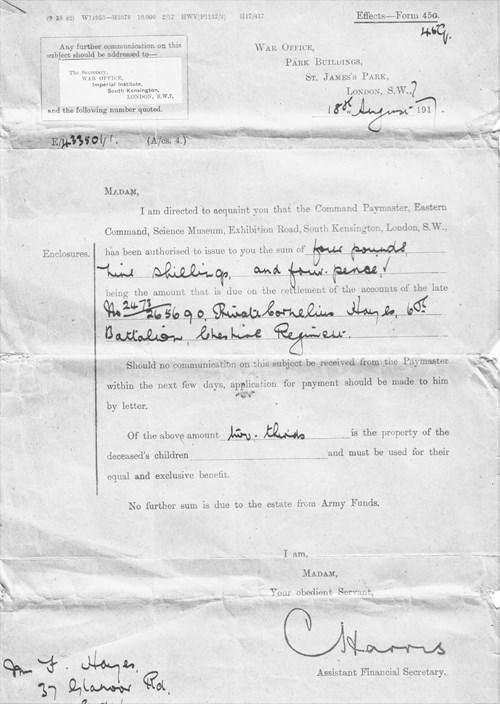 W14955—M1078 10,000 2/17 HWV(P1137/2) H17/417
Effects—Form 45G.
45G.
Any further communication on this
subject should be addressed to—
The Secretary,
WAR OFFICE,
Imperial Institute,
South Kensington,
LONDON, S.W.7.
and the following number quoted.
WAR OFFICE,
PARK BUILDINGS,
ST. JAMES'S PARK,
LONDON, S.W.,
18th August 1917
E/433501/1. (A/cs. 4.)
MADAM,
I am directed to acquaint you that the Command Paymaster, Eastern
Command, Science Museum, Exhibition Road, South Kensington, London, S.W.,
Enclosures. has been authorised to issue to you the sum of four pounds,
nine shillings, and four pence,
being the amount that is due on the settlement of the accounts of the late
No 2473
265690, Private Cornelius Hayes, 6th
Battalion, Cheshire Regiment.
Should no communication on this subject be received from the Paymaster
within the next few days, application for payment should be made to him
by letter.
Of the above amount two-thirds is the property of the
deceased's children and must be used for their
equal and exclusive benefit.
No further sum is due to the estate from Army Funds.
I am,
MADAM,
Your obedient Servant,
C Harris
Assistant Financial Secretary.
Mrs F. Hayes,
37 Rd.